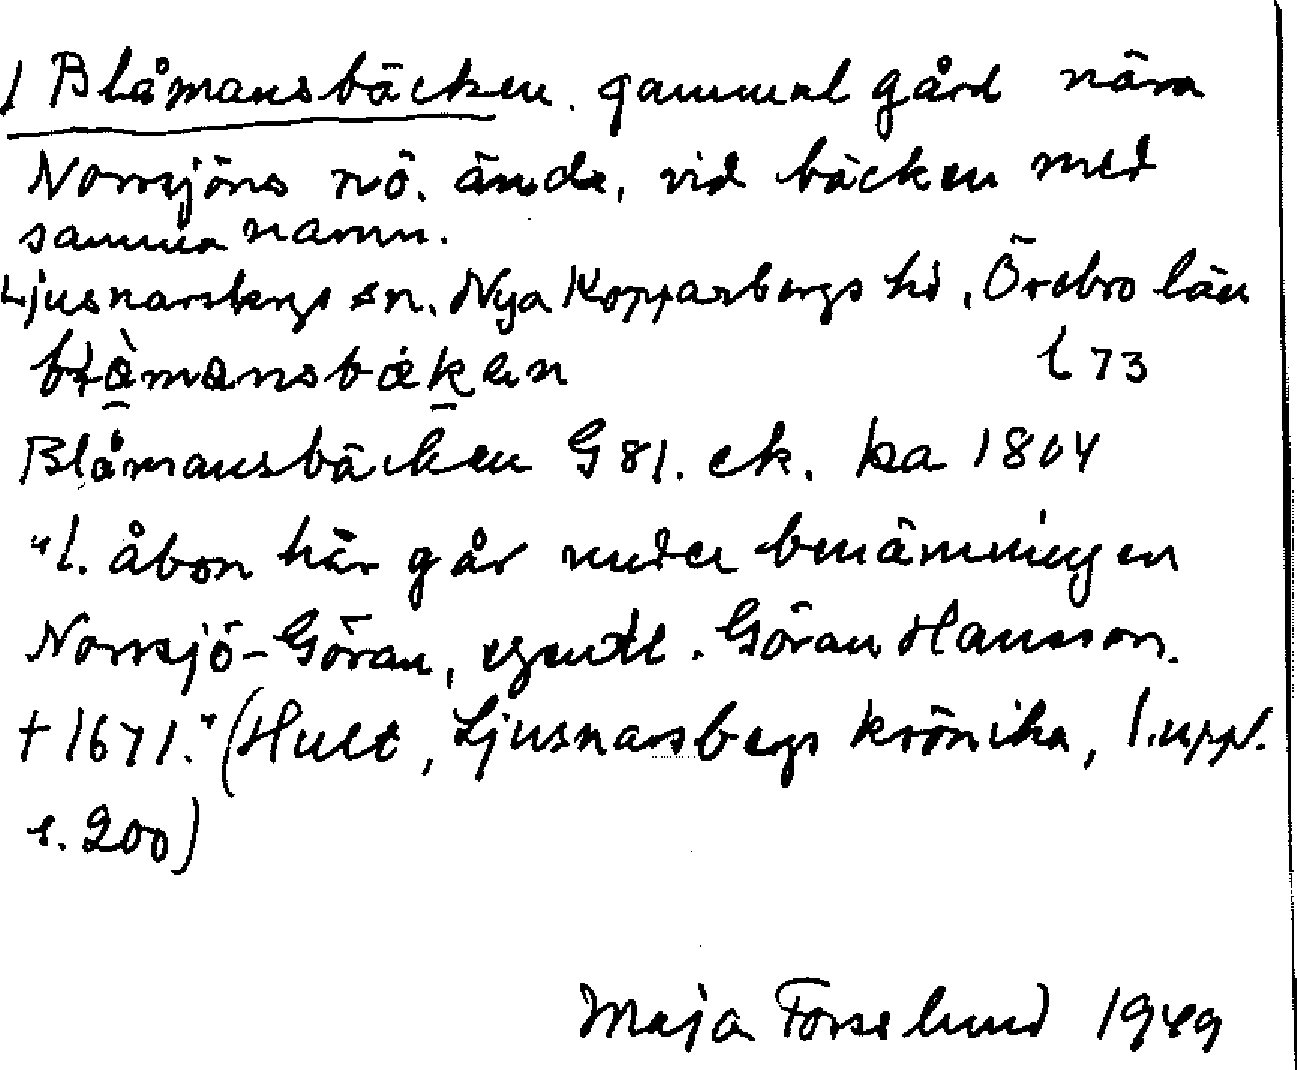 1 Blåmansbäcken. gammal gård nära
Norrsjöns nö. ände, vid bäcken med
samma namn.
Ljusnarsbergs sn. Nya Kopparbergs hd, Örebro län
blåmansbäken l 73
Blåmansbäcken G 81. ek. ka 1804
"1. åbon här går under benämningen
Norrsjö-Göran, egentl. Göran Hansson.
† 1671." (Hult, Ljusnarsbergs krönika, 1.uppl.
s. 200)
Maja Forsslund 1949